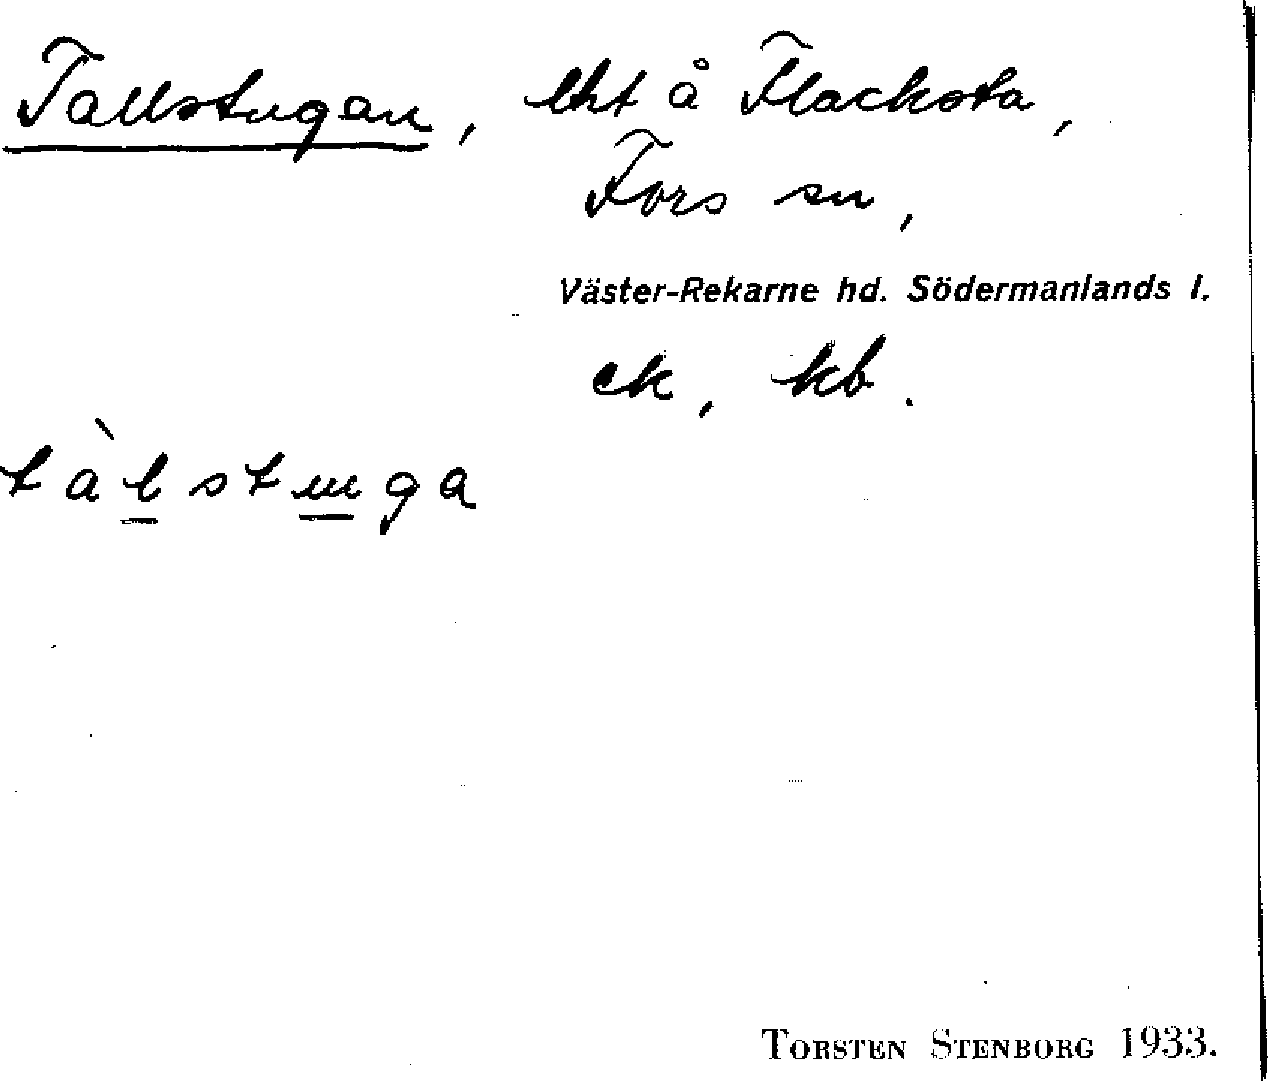 Tallstugan, lht å Flacksta,
Fors sn,
Väster-Rekarne hd. Södermanlands l.
ek, kb.
tàlstuga
TORSTEN STENBORG 1933.